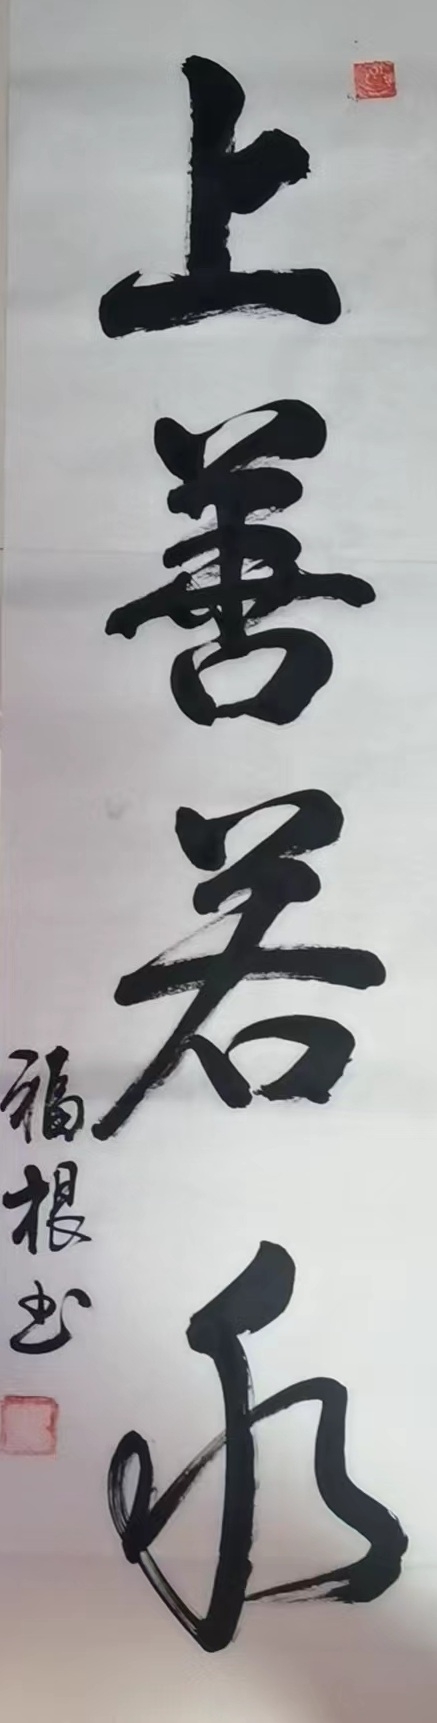 上善若水
福根书